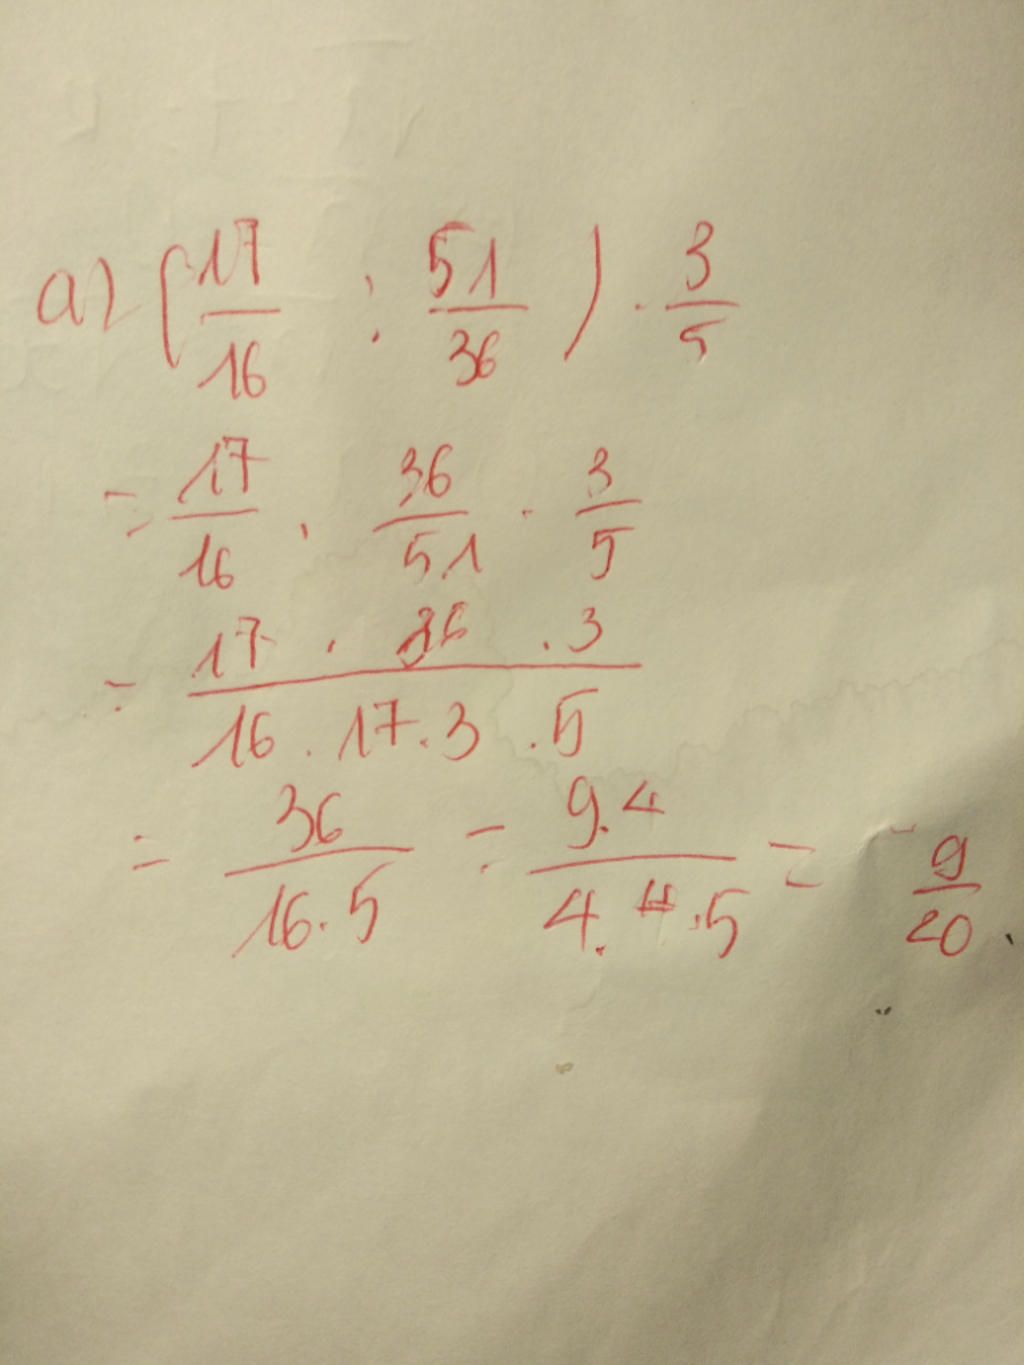 a) (17/16 : 51/36) . 3/5
= 17/16 . 36/51 . 3/5
= 17 . 36 . 3 / 16 . 17 . 3 . 5
= 36 / 16 . 5 = 9 . 4 / 4 . 4 . 5 = 9/20 .